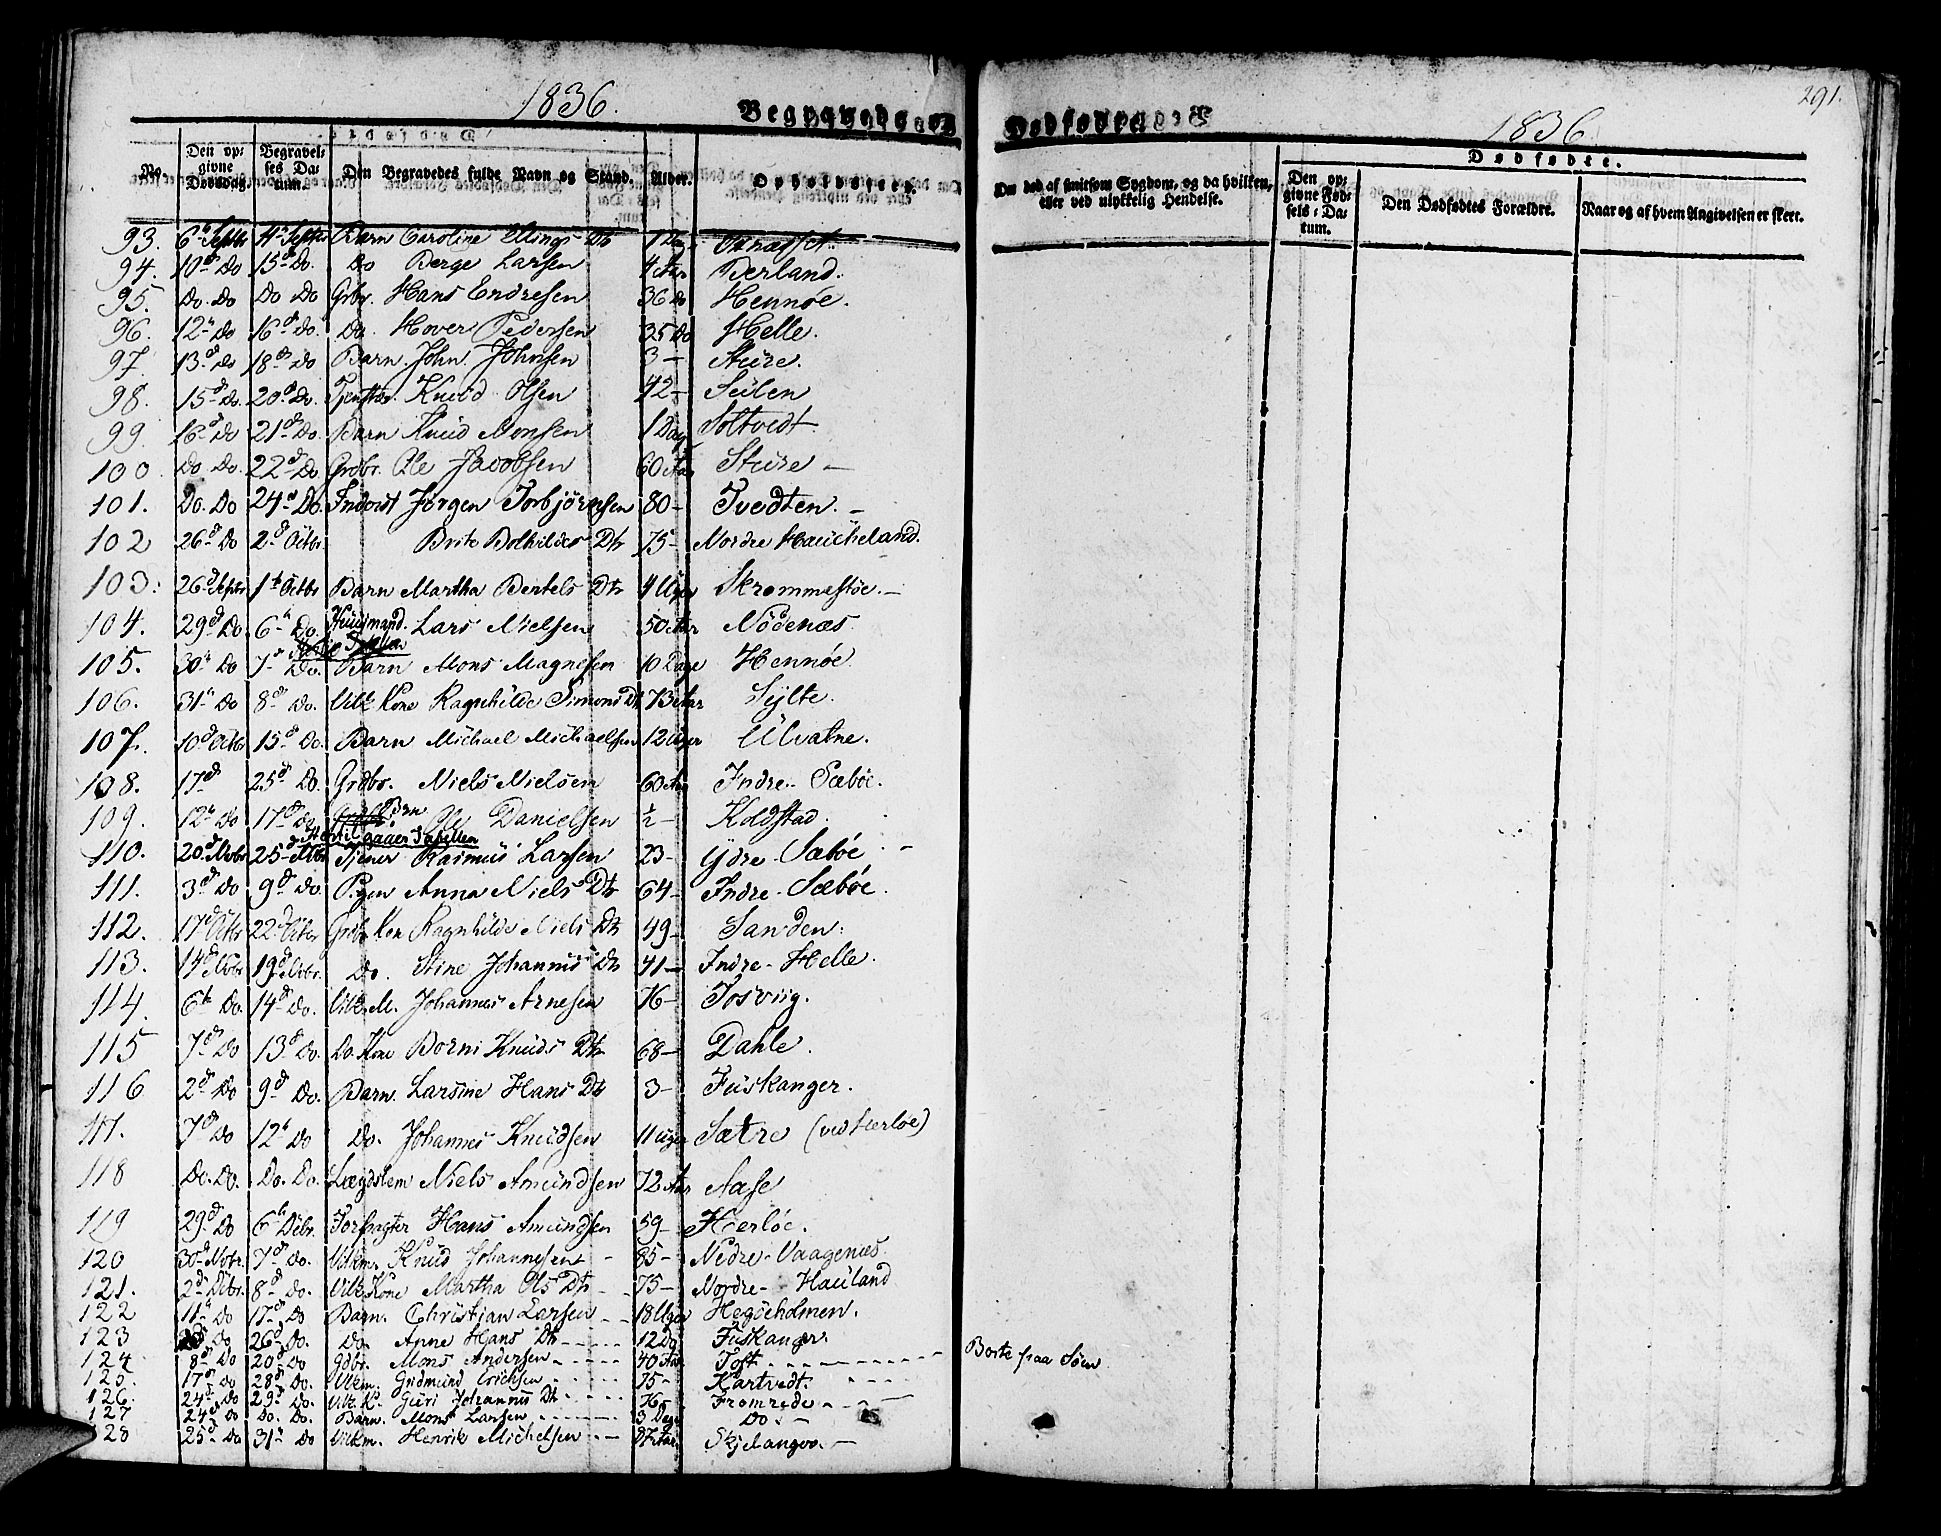 1836.
Begravede og
No.
Den opgivne Dødsdag.
Begravelses Datum.
Den Begravedes fulde Navn og Stand.
Alder.
Opholdssted.
93. 6te Septbr 11te Septbr Barn Caroline Ellings Dtr 1 Dag
94. 10de Do 15de Do. Do Berge Larsen 4 Aar Berland.
95. Do. Do Do Do Grbr. Hans Endresen 36 Do Hennøe.
96. 12te Do 16de Do. Do. Hover Pedersen 35 Do Helle.
97. 13de Do 18de Do Barn. John Johnsen 3 – Sture.
98. 15de Do. 20de Do. Knud Olsen 42 – Seilen
99. 16de Do 21de Do. Barn Knud Monsen 1 Dag Soltvedt
100. Do Do. 22de Do Grdbr. Ole Jacobsen 60 Aar Sture –
101. Do. Do 24de Do. Inderst Jørgen Torbjørnsen 80 – Tvedten. –
102 26de Do 2den Octbr. Brite Bothildes Dtr 75 – Nordre Haucheland.
103. 26de Septbr 1te Octbr Barn Martha Bertels Dtr 4 Uger Skrommestøe. –
104. 29de Do. 6te Do. Huusmand. Lars Nielsen 50 Aar Nødenæs
105. 30te Do 7de Do. Barn Mons Magnesen 10 Dage Hennøe
106. 31te Do 8de Do. Vilk. Kone Ragnhilde Simons Dtr 73 Aar Sylte.
107. 10de Octbr 15de Do. Barn Michael Michaelsen 12 Uger Ulvatne.
108. 17de 25de Do. Grdbr. Niels Nielsen 60 Aar Indre Sæbøe.
109. 12te Do 17de Do. Brn Ole Danielsen ½ – Koldstad.
Hertil gaaer Tabellen
110. 20de Novbr 25de Novbr Tjener Rasmus Larsen 23 – Ydre Sæbøe –
111. 3de Do 9de Do. Pigen Anna Niels Dtr 64 – Indre Sæbøe.
112. 17de Octbr 22de Octbr Grdbr Kon Ragnhilde Niels Dtr 49 – Sanden.
113. 14de Novbr 19de Novbr. Do. Stine Johannes Dtr 41 – Indre - Helle.
114. 6te Do. 14de Do. Vilk. M. Johannes Arnesen 76 – Tosviig.
115 7de Do 13de Do. Do. Kone Borni Knuds Dtr 68 – Dahle.
116 2de Do 9de Do. Barn. Larsine Hans Dtr 3 – Fuskanger.
117. 7de Do 12te Do Do. Johannes Knudsen 11 Uger Sætre (ved Herløe)
118 Do. Do. Do. Do. Lægdslem Niels Amundsen 72 Aar Aase
119 29de Do 6te Debr. Forpagter Hans Amundsen 59 – Herløe.
120 30te Novbr. 7de Do. Vilkm. Knud Johannesen – 85 – Nedre - Vaagenæs.
121. 2de Debr. 8de Do. Vilk. Kone Martha Ols Dtr 75 – Nordre - Hauland
122 11te Do 17de Do Barn. Christian Larsen – 18 Uger Hegøeholmen.
123 Do 26de Do. Do Anne Hans Dtr 12 Dg Fuskanger.
124. 8de Do 20de Do Gdbr. Mons Andersen 40 Aar Toft. Borte paa Søen
125. 17de Do 28de Do. Vilkm. Gudmund Erichsen 75 – Kartvedt.
126. 24de Do 29de Do. Vilk. K. Guri Johannes Dtr 76 – Fromrede –
127 24de Do Do. Do. Barn. Mons Larsen 3 Dage Do –
128 25de Do 31te Do Vilkm. Henrik Michelsen – Skjelanger. –
Dødfødte.
291.
1836
Om død af smitsom Sygdom, og da hvilken, eller ved ulykkelig Hendelse.
Dødfødte.
Den opgivne Fødsels-Datum.
Den Dødfødtes Forældre.
Naar og af hvem Angivelsen er skeet.